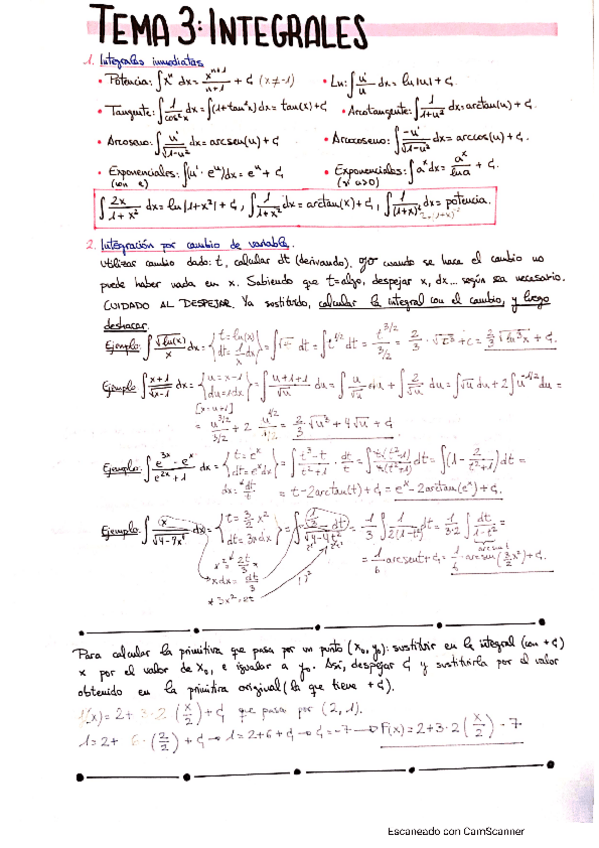 TEMA 3: INTEGRALES
1. Integrales inmediatas
• Potencia: ∫xⁿ dx = xⁿ⁺¹/(n+1) + C (x≠-1) • Ln: ∫u'/u dx = ln|u| + C.
• Tangente: ∫1/cos²x dx = ∫(1+tan²x)dx = tan(x) + C • Arcotangente: ∫1/(1+u²) dx = arctan(u) + C.
• Arcoseno: ∫u'/√(1-u²) dx = arcsen(u) + C • Arcocoseno: ∫-u'/√(1-u²) dx = arccos(u) + C.
• Exponenciales: ∫(u' · eᵘ)dx = eᵘ + C • Exponenciales: ∫aˣdx = aˣ/lna + C.
(con e) (si a>0)
∫2x/(1+x²) dx = ln|1+x²| + C, ∫1/(1+x²) dx = arctan(x) + C, ∫1/(1+x)² dx = potencia.
2. Integración por cambio de variable.
Utilizar cambio dado: t, calcular dt (derivando). Ojo cuando se hace el cambio no
puede haber nada en x. Sabiendo que t=algo, despejar x, dx... según sea necesario.
CUIDADO AL DESPEJAR. Ya sustituido, calcular la integral con el cambio, y luego
deshacer.
Ejemplo: ∫√ln(x)/x dx = {t = ln(x) dt = 1/x dx} = ∫√t dt = ∫t^(1/2) dt = t^(3/2)/(3/2) = 2/3 · √t³ + C = 2/3 √ln³x + C.
Ejemplo ∫(x+1)/√(x-1) dx = {u = x-1 du = 1dx} = ∫(u+1+1)/√u du = ∫u/√u du + ∫2/√u du = ∫√u du + 2∫u^(-1/2) du =
[x=u+1] = u^(3/2)/(3/2) + 2 u^(1/2)/(1/2) = 2/3 √u³ + 4√u + C
Ejemplo: ∫(e³ˣ - eˣ)/(e²ˣ+1) dx = {t = eˣ dt = eˣdx} = ∫(t³-t)/(t²+1) · dt/t = ∫t(t²-1)/t(t²+1) dt = ∫(1 - 2/(t²+1)) dt =
dx = dt/t = t - 2arctan(t) + C = eˣ - 2arctan(eˣ) + C.
Ejemplo: ∫x/√(4-9x⁴) dx = {t = 3/2 x² dt = 3xdx}
xdx = dt/3
Para calcular la primitiva que pasa por un punto (x₀, y₀): sustituir en la integral (con + C)
x por el valor de x₀, e igualar a y₀. Así, despejar C y sustituirla por el valor
obtenido en la primitiva original (la que tiene + C).
F(x) = 2+3·2 (x/2) + C que pasa por (2, 1).
1 = 2+ 6·(2/2) + C → 1 = 2+6 + C → C = -7 → F(x) = 2+3·2 (x/2) - 7
Escaneado con CamScanner